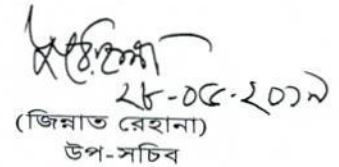 ২৮-০৫-২০১৯
(জিন্নাত রেহানা)
উপ-সচিব